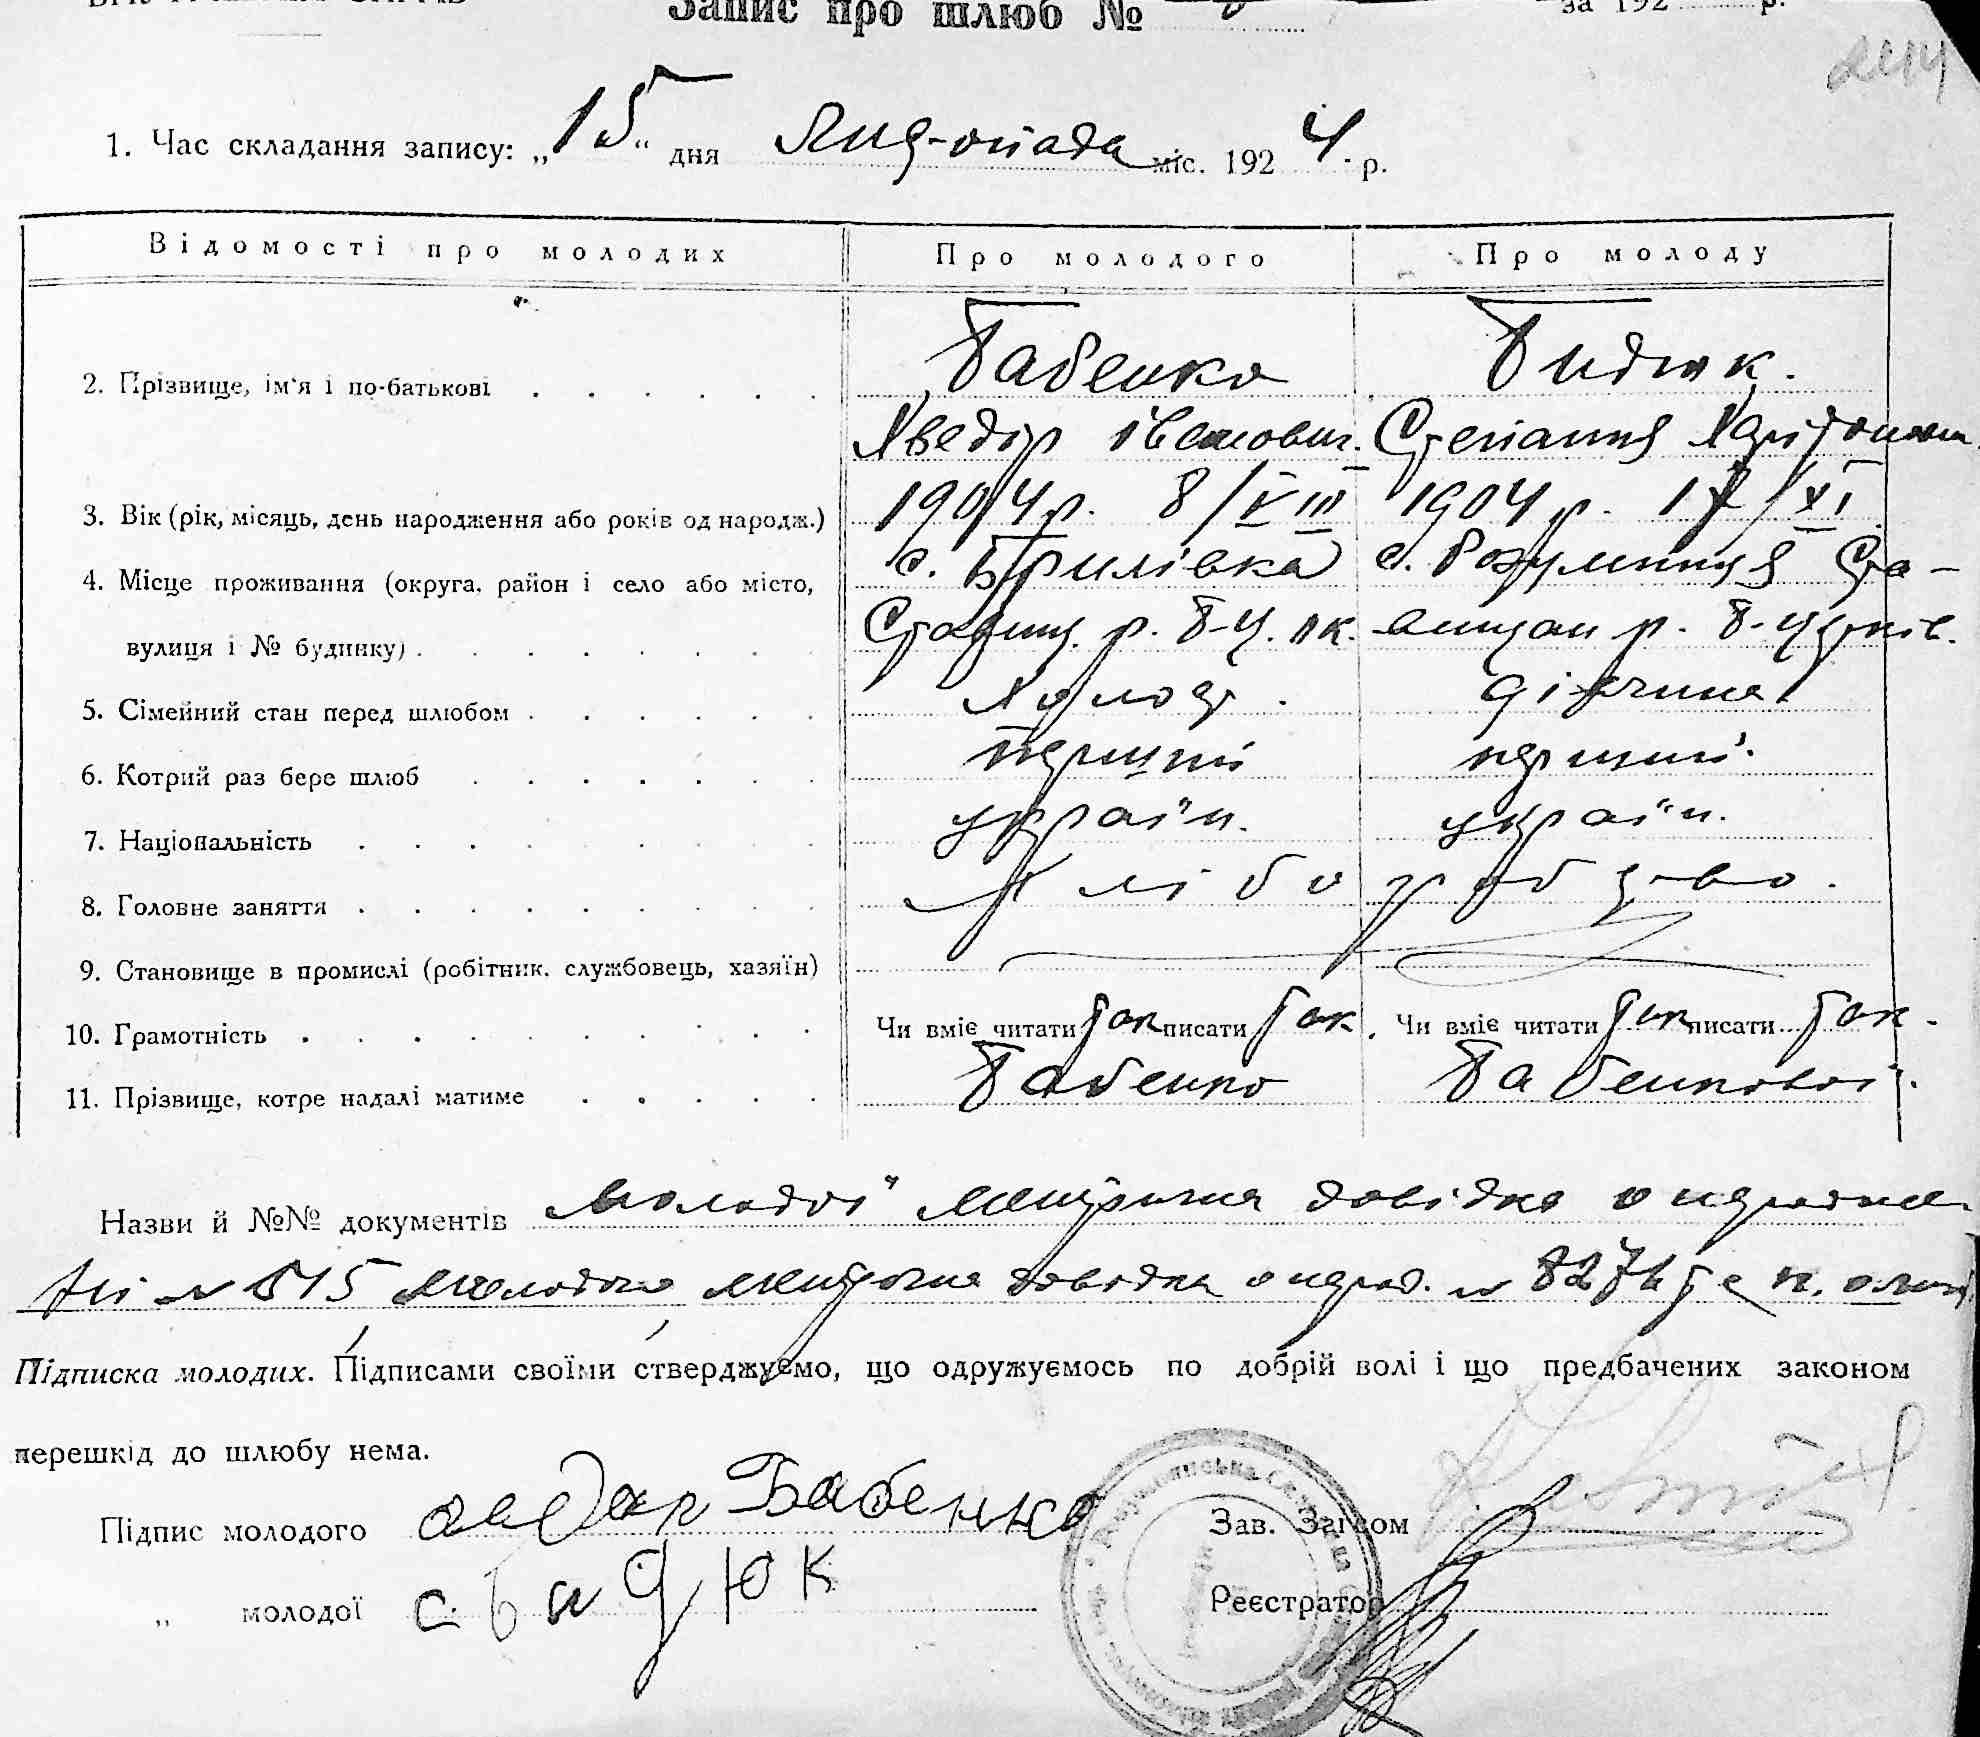 Запис про шлюб № за 192 р.
2414
1. Час складання запису: „15“ дня Листопада міс. 1924 р.
Відомості про молодих Про молодого Про молоду
Бабенко Бидюк.
2. Прізвище, ім'я і по-батькові
Хведір Іванович. Степанида
3. Вік (рік, місяць, день народження або років од народж.) 1904 р. 8/VIII 1904 р. 17/XI
4. Місце проживання (округа, район і село або місто, с. Брилівка с. Розумниця Ста-
вулиця і № будинку) Ставищ. р. Б-Ц. ок. вищан р. Б-Ц
5. Сімейний стан перед шлюбом Холост. дівчина
6. Котрий раз бере шлюб перший перший.
7. Національність україн. україн.
8. Головне заняття хліборобство.
9. Становище в промислі (робітник, службовець, хазяїн)
10. Грамотність Чи вміє читати так писати так. Чи вміє читати так писати так.
11. Прізвище, котре надалі матиме Бабенко Бабенкової.
Назви й №№ документів молодої метрична довідка о
№ 515 молодого метрична довідка о народ. № 8276
Підписка молодих. Підписами своїми стверджуємо, що одружуємось по добрій волі і що предбачених законом
перешкід до шлюбу нема.
Підпис молодого Бабенко
Зав. Загсом
„ молодої с бидюк
Реєстратор